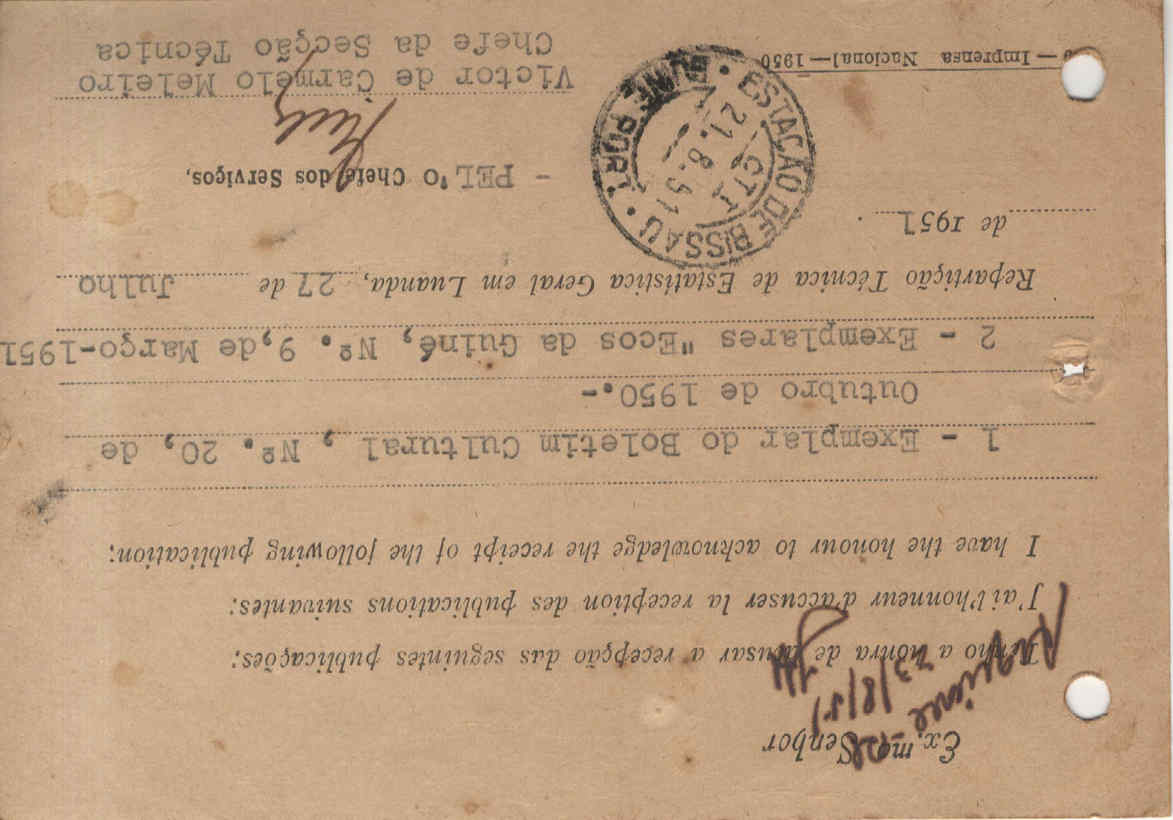 Ex.mo Senhor
Arquive-se
23/8/51
Tenho a honra de acusar a recepção das seguintes publicações:
J'ai l'honneur d'accuser la reception des publications suivantes:
I have the honour to acknowledge the receipt of the following publication:
1 - Exemplar do Boletim Cultural , Nº. 20, de
Outubro de 1950.-
2 - Exemplares "Ecos da Guiné, Nº. 9,de Março-1951
Repartição Técnica de Estatística Geral em Luanda, 27 de Julho
de 1951 .
- PEL'O Chefe dos Serviços,
Victor de Carmelo Meleiro
Chefe da Secção Técnica
— Imprensa Nacional—1950
ESTAÇÃO DE BISSAU
CTT
21.8.51
GUINÉ PORT.